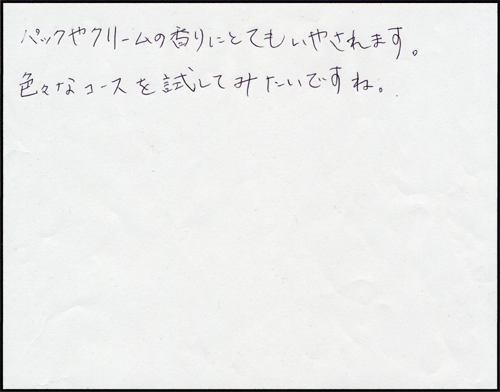 パックやクリームの香りにとてもいやされます。
色々なコースを試してみたいですね。